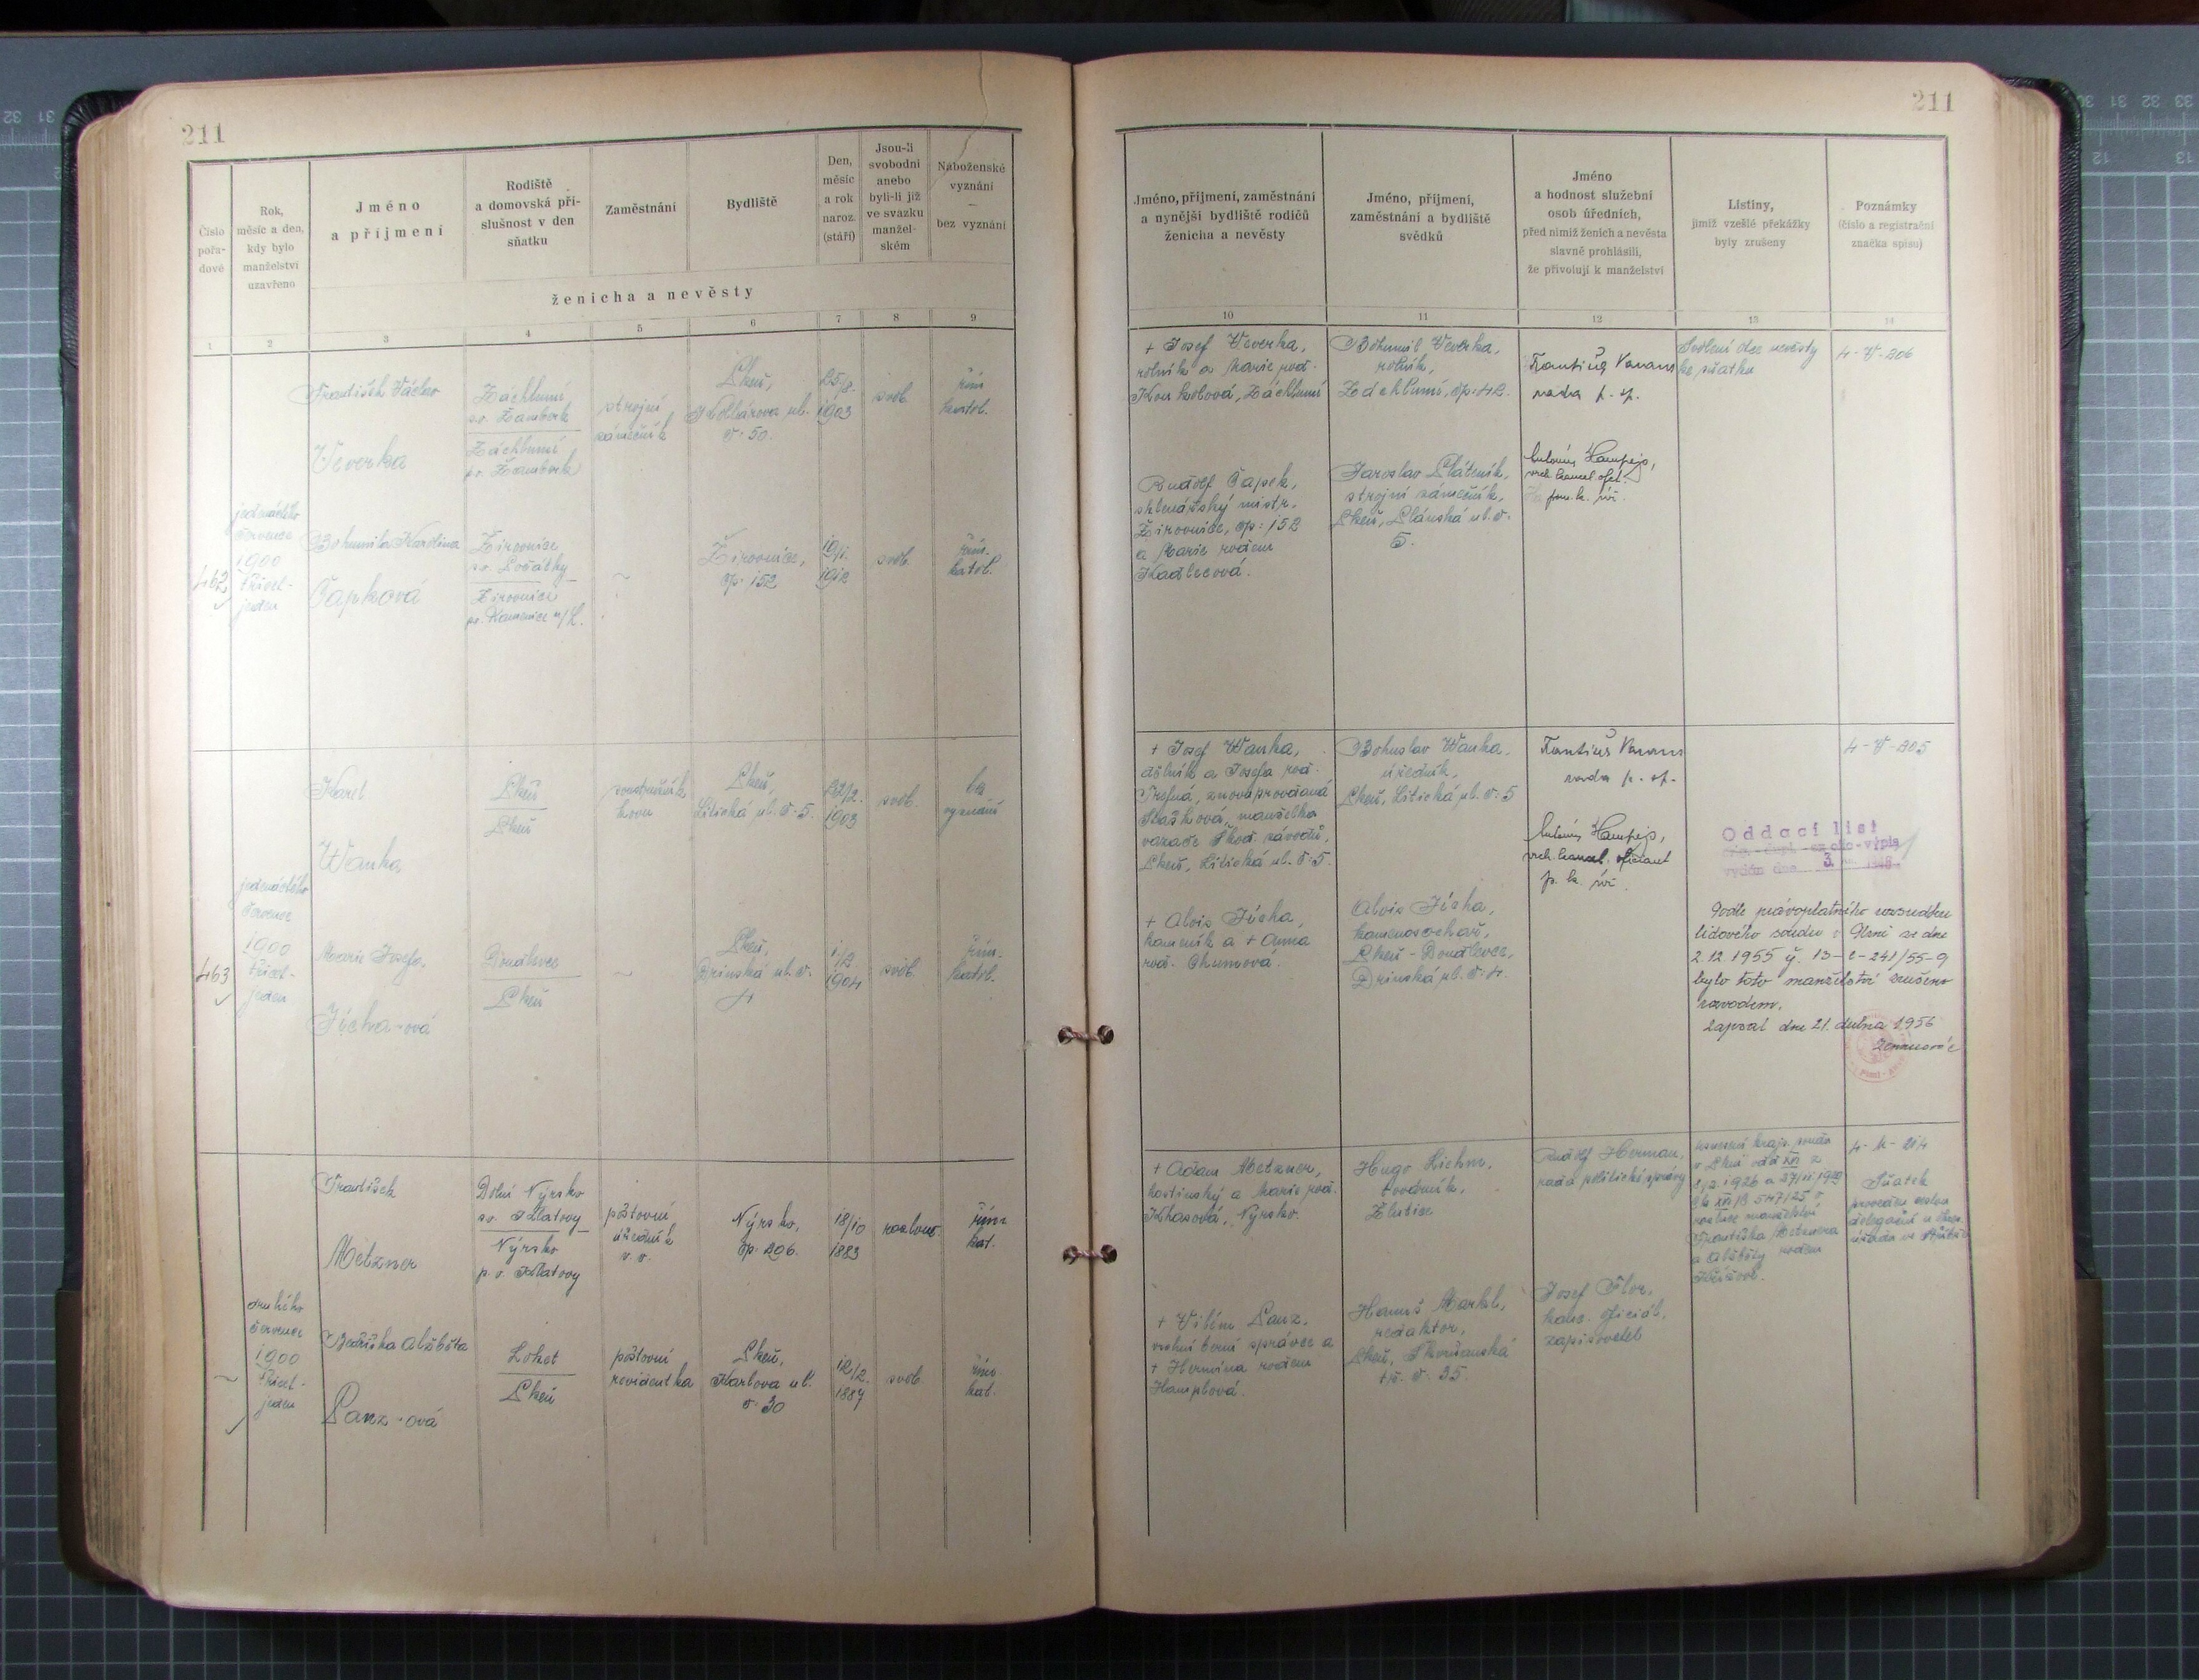 211
211
Číslo
pořa-
dové
Rok,
měsíc a den,
kdy bylo
manželství
uzavřeno
Jméno
a příjmení
Rodiště
a domovská pří-
slušnost v den
sňatku
Zaměstnání
Bydliště
Den,
měsíc
a rok
naroz.
(stáří)
Jsou-li
svobodni
anebo
byli-li již
ve svazku
manžel-
ském
Náboženské
vyznání
—
bez vyznání
ženicha a nevěsty
1
2
3
4
5
6
7
8
9
Jméno, příjmení, zaměstnání
a nynější bydliště rodičů
ženicha a nevěsty
Jméno, příjmení,
zaměstnání a bydliště
svědků
Jméno
a hodnost služební
osob úředních,
před nimiž ženich a nevěsta
slavně prohlásili,
že přivolují k manželství
Listiny,
jimiž vzešlé překážky
byly zrušeny
Poznámky
(číslo a registrační
značka spisu)
10
11
12
13
14
462
jedenáctého
července
1900
třicet-
jeden
František Václav
Veverka
Záchlumí,
so. Žamberk
Záchlumí
po. Žamberk
strojní
zámečník
Plzeň,
Kollárova ul.
č. 50.
25/8.
1903
svob.
řím
katol.
Bohumila Karolina
Čapková
Žirovnice
so. Počátky
Žirovnice
po. Kamenice n/L.
~
Žirovnice,
čp. 152
19/1.
1912
svob.
řím.
katol.
+ Josef Veverka,
rolník a Marie roz.
Koukolová, Záchlumí
Rudolf Čapek,
sklenářský mistr,
Žirovnice, čp. 152
a Marie rozem
Kadlecová.
Bohumil Veverka,
rolník,
Záchlumí, čp. 42.
Jaroslav Pláteník,
strojní zámečník,
Plzeň, Plánská ul. č.
5.
rada p. sp.
Antonín Hampejs,
vrch. kancel. ofic.
Svolení otce nevěsty
ke sňatku
4-V-206
463
jedenáctého
července
1900
třicet-
jeden
Karel
Wanka,
Plzeň
Plzeň
soustružník
kovu
Plzeň,
Litická ul. č. 5.
22/2.
1903
svob.
bez
vyznání
Marie Josefa,
Jícha-ová
Doudlevce
Plzeň
~
Plzeň,
Drinská ul. č.
4
1/2
1904
svob.
řím.
katol.
+ Josef Wanka,
dělník a Josefa roz.
Trefná, znovuprovdaná
manželka
vazače Škod. závodů,
Plzeň, Litická ul. č. 5.
+ Alois Jícha,
kameník a + Anna
roz. Chumová.
Bohuslav Wanka,
úředník,
Plzeň, Litická ul. č. 5
Alois Jícha,
kamenosochař,
Plzeň - Doudlevce,
Drinská ul. č. 4.
rada p. sp.
Antonín Hampejs,
vrch. kancel. oficiant
4-V-205
Oddací list
vydán dne 3.
Podle právoplatného rozsudku
lidového soudu v Plzni ze dne
2.12.1955 č. 13-C-241/55-9
bylo toto manželství zrušeno
rozvodem.
Zapsal dne 21. dubna 1956
~
druhého
července
1900
třicet-
jeden
František
Metzner
Dolní Nýrsko
so. Klatovy
Nýrsko
p. o. Klatovy
poštovní
úředník
v. v.
Nýrsko,
čp. 206.
18/10
1883
rozlouč.
řím
kat.
Bedřiška Alžběta
Panz-ová
Loket
Plzeň
poštovní
revidentka
Plzeň,
Karlova ul.
č. 30
12/2.
1887
svob.
řím.
kat.
+ Adam Metzner,
hostinský a Marie roz.
Khasová, Nýrsko.
+ Vilém Panz,
vrchní berní správce a
+ Hermina rozem
Hamplová.
Hugo Liehm,
továrník,
Žlutice
Hanuš Markl,
redaktor,
Plzeň, Skvrňanská
tř. č. 35.
Rudolf Herman,
rada politické správy
Josef Flor,
kanc. oficiál,
zapisovatel
Usnesení krajs. soudu
v Plzni odd XVI z
rozluce manželství
Františka Metznera
a Alžběty rozem
4-M-214
Sňatek